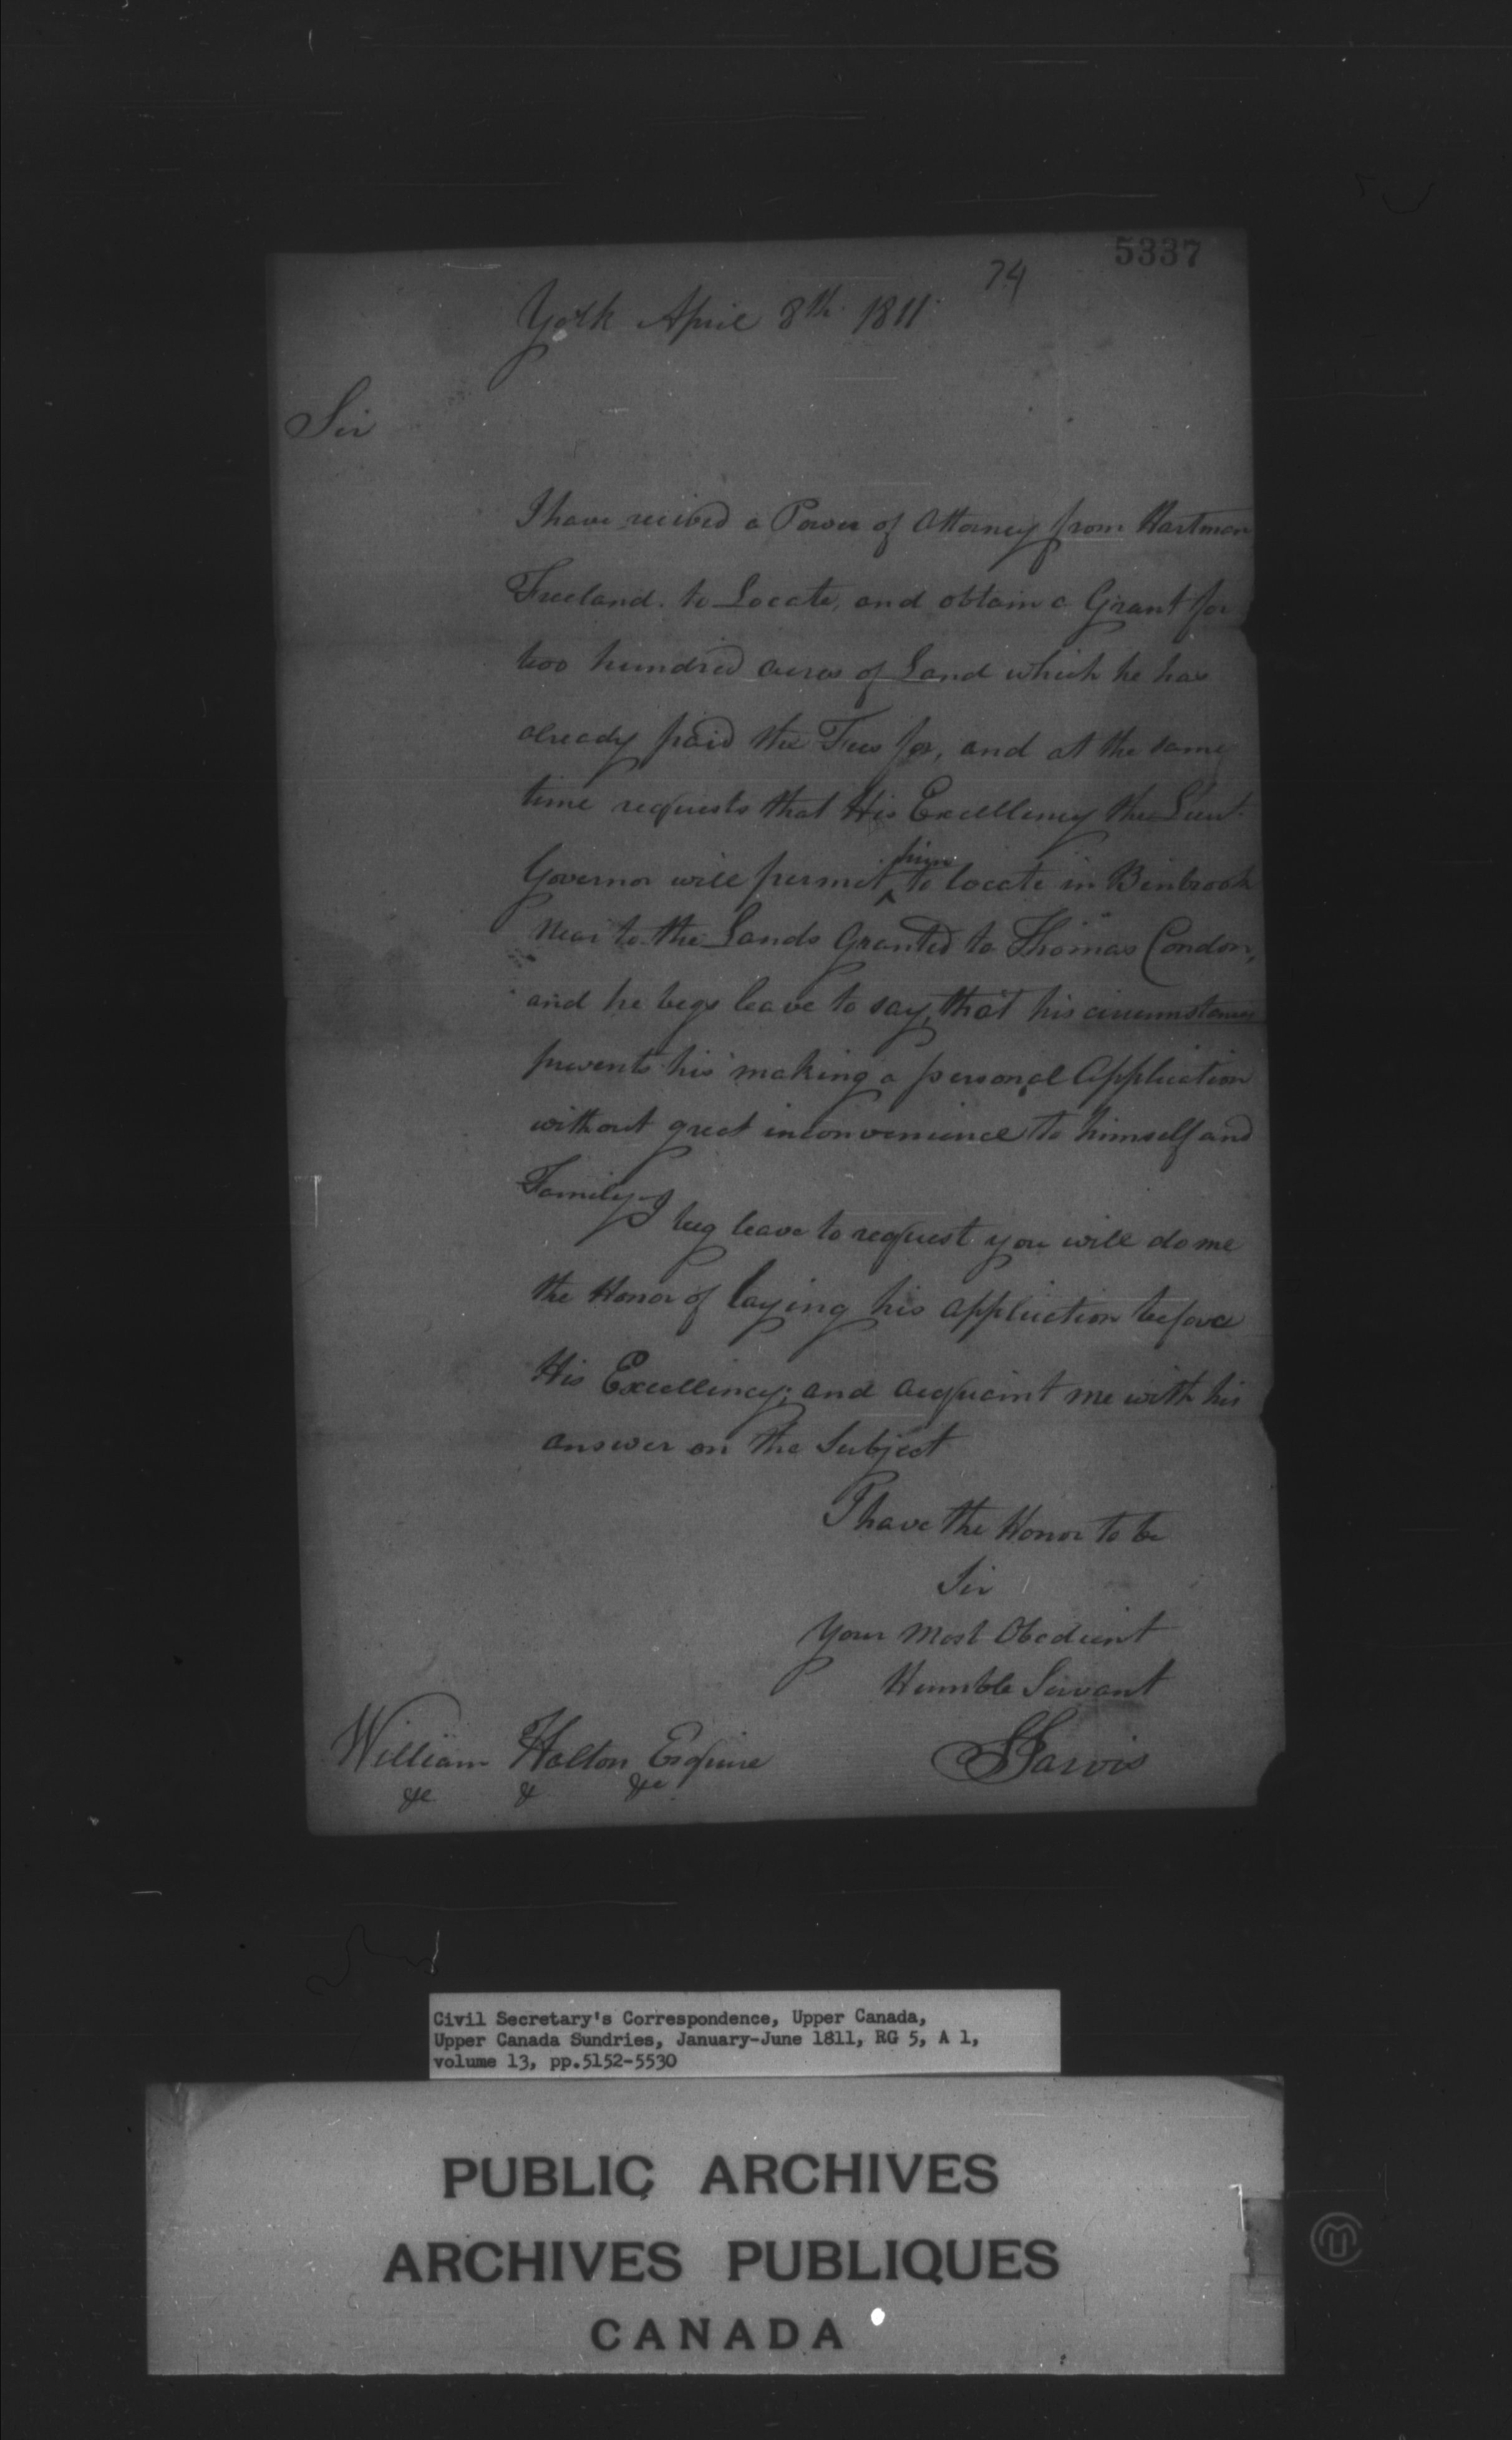 5337
74
York April 8th. 1811
Sir
I have recived a Power of Attorney from Hartman
Freeland. to Locate, and obtain a Grant for
two hundred acres of Land which he has
already paid the Fees for, and at the same
time requests that His Excellency the Lieut.
Governor will permit ^him to locate in Binbrook
Near to the Lands Granted to Thomas Condon,
and he begs leave to say, that his circumstances
prevents his making a personal Application
without great inconvenience to himself and
Family. I beg leave to request you will do me
the Honor of laying his application before
His Excellency; and acquaint me with his
answer on the Subject
I have the Honor to be
Sir
Your Most Obedient
Humble Servant
William Halton Esquire
Jarvis
&c & &c
Civil Secretary's Correspondence, Upper Canada,
Upper Canada Sundries, January-June 1811, RG 5, A 1,
volume 13, pp.5152-5530
PUBLIC ARCHIVES
ARCHIVES PUBLIQUES
CANADA